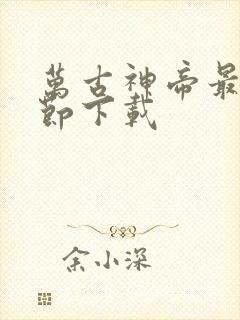 萬古神帝最
節下載
余小深